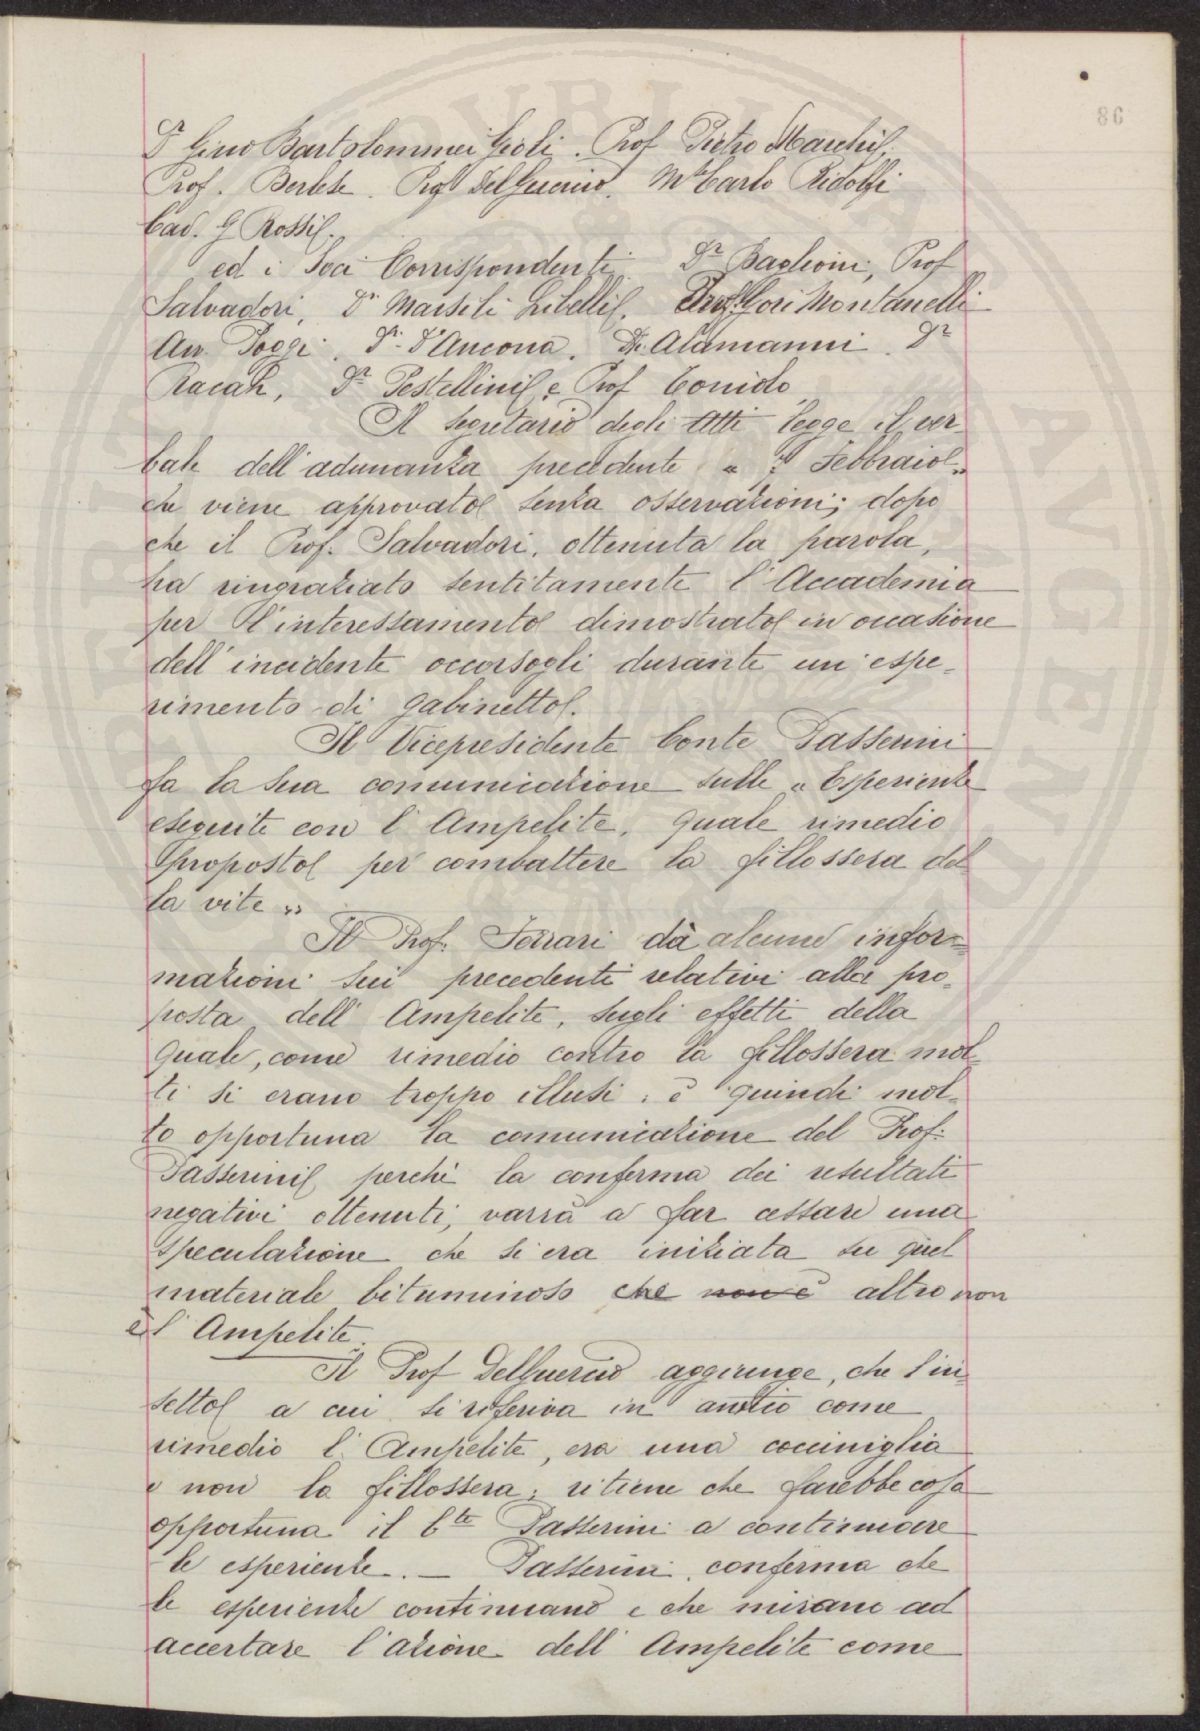 86
Dr Gino Bartolommei Gioli. Prof Pietro Marchi,
Prof. Berlese. Prof Del Guercio. Mse Carlo Ridolfi
Cav. G Rossi.
ed i Soci Corrispondenti Dr Baglioni, Prof
Salvadori, Dr Marsili Libelli, Prof. Gori Montanelli
Avv. Poggi. Dr D'Ancona. Dr Alamanni. Dr
Racah, Dr Pestellini, e Prof Comido
Il Segretario degli Atti legge il ver-
bale dell'adunanza precedente « Febbraio »
che viene approvato senza osservazioni; dopo
che il Prof. Salvadori, ottenuta la parola,
ha ringraziato sentitamente l'Accademia
per l'interessamento dimostrato in occasione
dell'incidente occorsogli durante un'espe-
rimento di gabinetto.
Il Vicepresidente Conte Passerini
fa la sua comunicazione sulle « Esperienze
eseguite con l'Ampelite, quale rimedio
proposto per combattere la fillossera del
la vite »
Il Prof. Ferrari dà alcune infor=
mazioni sui precedenti relativi alla pro-
posta dell'Ampelite, sugli effetti della
quale, come rimedio contro la fillossera mol-
ti si erano troppo illusi; è quindi mol-
to opportuna la comunicazione del Prof.
Passerini perchè la conferma dei resultati
negativi ottenuti, varrà a far cessare una
speculazione che si era iniziata su quel
materiale bituminoso che non è altro non
è l'Ampelite.
Il Prof Del Guercio aggiunge, che l'in-
setto a cui si riferiva in antico come
rimedio l'Ampelite, era una cocciniglia
e non la fillossera; ritiene che farebbe cosa
opportuna il Cte Passerini a continuare
le esperienze. — Passerini, conferma che
le esperienze continuano e che mirano ad
accertare l'azione dell'Ampelite come